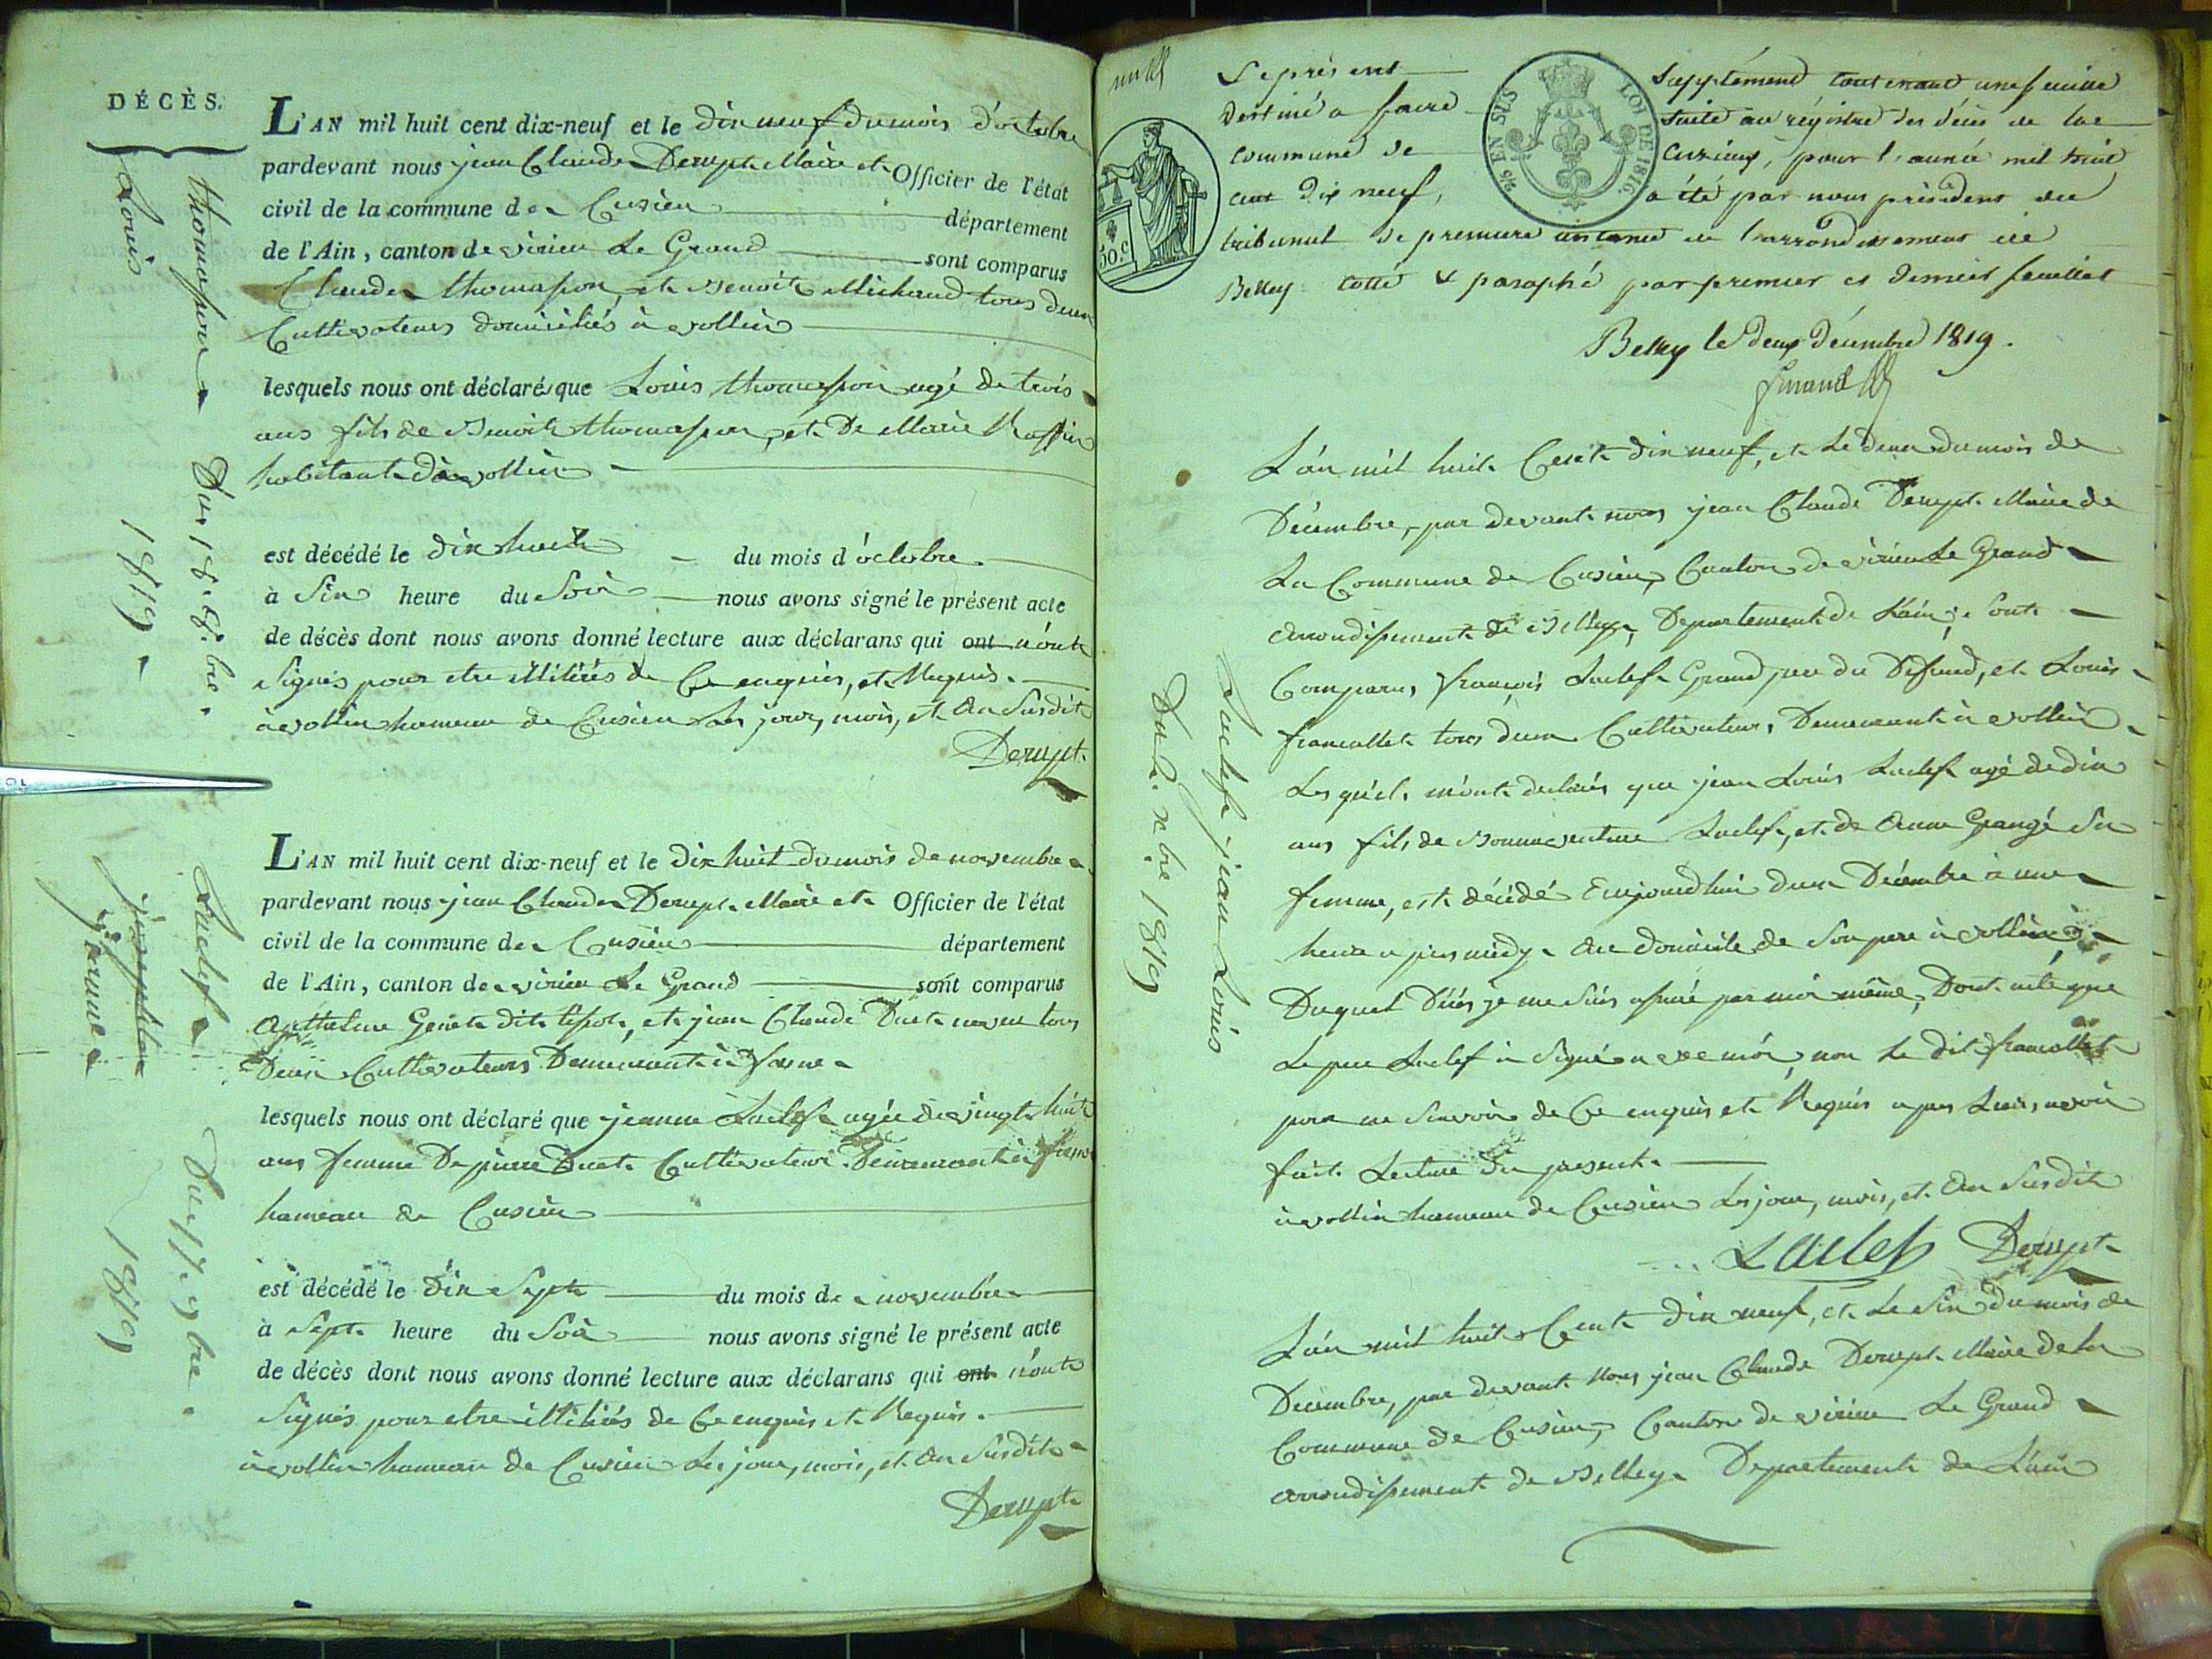 DÉCÈS.
thomasson
Louis
Du 18. 8.bre
1819
L'AN mil huit cent dix-neuf et le dix neuf du mois d'octobre
pardevant nous jean Claude Derupt Maire et Officier de l'état
civil de la commune de Cusieu département
de l'Ain, canton de virieu Le Grand sont comparus
Claude thomasson, et Benoit Michaud tous deux
Cultivateurs domiciliés à vollien
lesquels nous ont déclaré que Louis thomasson agé de trois
ans fils de Benoit thomasson, et De Marie
habitant à vollien
est décédé le dix huit du mois d'octobre
à Six heure du Soir nous avons signé le présent acte
de décès dont nous avons donné lecture aux déclarans qui ont n'ont
Signés pour etre illitérés de Ce enquis, et Requis.
à vollien hameau de Cusieu Les jour, mois, et An Susdit
Derupt
Laclef
josephte
jeanne
Du 17. 9.bre
1819
L'AN mil huit cent dix-neuf et le dix huit du mois de novembre
pardevant nous jean Claude Derupt Maire et Officier de l'état
civil de la commune de Cusieu département
de l'Ain, canton de virieu Le Grand sont comparus
Anthelme dit et jean Claude neveu tous
Deux Cultivateurs Demeurant à
lesquels nous ont déclaré que jeanne Laclef agée de vingt huit
ans femme De pierre Cultivateur Demeurant à
hameau de Cusieu
est décédé le Dix Sept du mois de novembre
à Sept heure du Soir nous avons signé le présent acte
de décès dont nous avons donné lecture aux déclarans qui ont n'ont
Signés pour etre illitérés de Ce enquis et Requis.
à vollien hameau de Cusieu Les jour, mois, et An Susdit
Derupt
Le présent Supplément contenant une feuille
Destiné a faire Suite au régistre des décès de la
commune de Cuzieux, pour l'année mil huit
cent dix neuf, a été par nous président du
tribunal de premiere instance de l'arrondissement de
Belley cotté & paraphé par premier et dernier feuillet
EN SUS
LOI DE 1816.
50.c
Belley le deux décembre 1819.
Du 2. x.bre 1819
Laclef jean Louis
L'an mil huit Cent dix neuf, et Le deux du mois de
Décembre, par devant nous jean Claude Derupt Maire de
La Commune de Cusieu, Canton de virieu Le Grand
arrondissement de Belley, Departement de L'ain; Sont
Comparus, françois Laclef Grand pere du Défund, et Louis
francollet tous deux Cultivateurs, Demeurant à vollien
Lesquels m'ont declarés que jean Louis Laclef agé de dix
ans fils de Bonnaventure Laclef, et de Anne Grangé Sa
femme, est décédé Aujourdhui deux Décembre à une
heure apres midy Au domicile de Son pere à vollien
Duquel Décés je me Suis assuré par moi même, Dont acte que
Le pere Laclef à Signé avec moi, non Le dit francollet
pour ne Savoir de Ce enquis et Requis apres Leur avoir
fait Lecture du present.
à vollien hameau de Cusieu Les jour, mois, et An Susdit
Laclef Derupt
L'an mil huit Cent dix neuf, et Le Six du mois de
Décembre, par devant Nous jean Claude Derupt Maire de La
Commune de Cusieu, Canton de virieu Le Grand
arrondissement de Belley Departement de L'ain